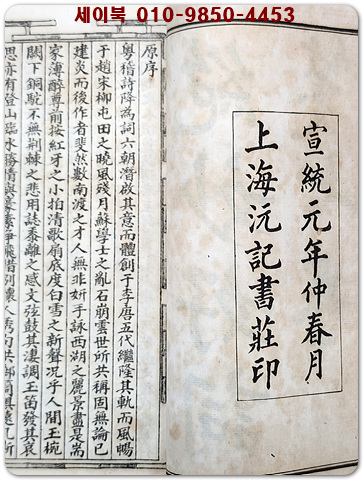 세이북 010-9850-4453
宣統元年仲春月
上海沅記書莊印
原序
粵稽詩降為詞六朝潛啟其意而體創于李唐五代繼隆其軌而風暢
于趙宋柳屯田之曉風殘月蘇學士之亂石崩雲世所共稱固無論已
建炎而後作者斐然數南渡之才人無非妍于詠西湖之麗景盡是耑
家薄醉尊前按紅牙之小拍清歌扇底度白雪之新聲況乎人間玉椀
闕下銅駝不無荆棘之悲用誌黍離之感文弦鼓其淒調玉笛發其哀
思亦有登山臨水勝情與豪素爭飛惜別懷人